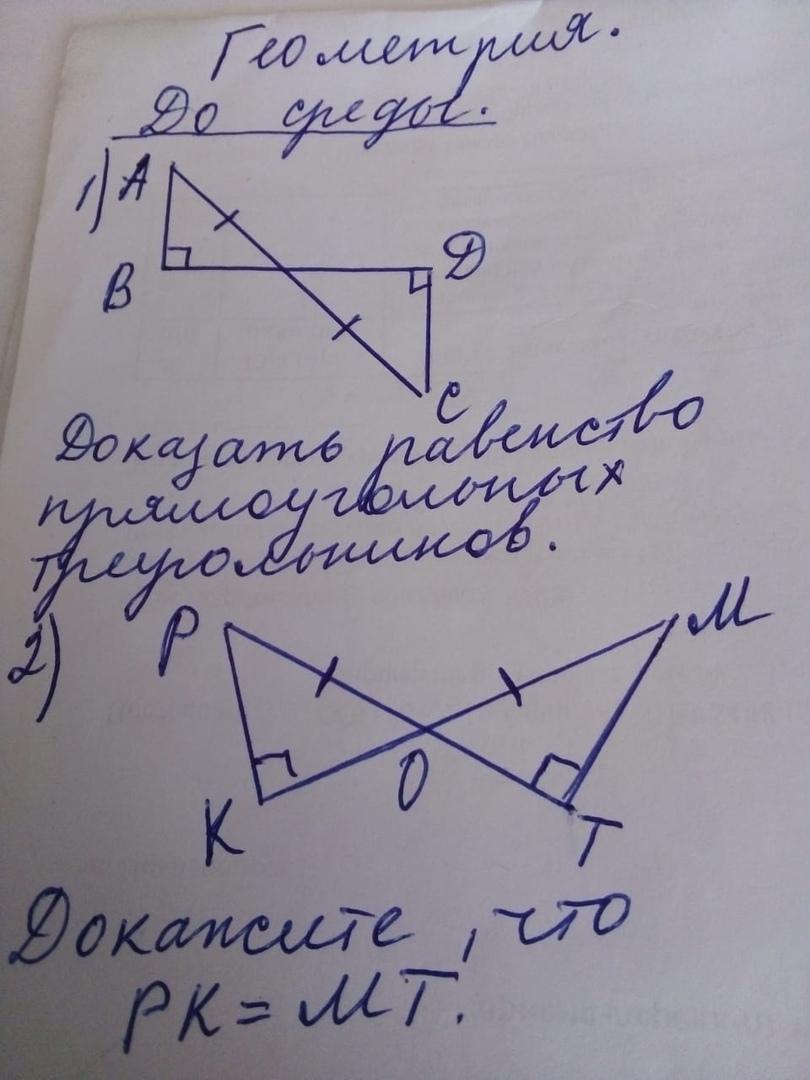 Геометрия.
До среды.
1) А
В
Д
С
Доказать равенство
прямоугольных
треугольников.
2)
Р
М
О
К
Т
Докажите, что
РК = МТ.